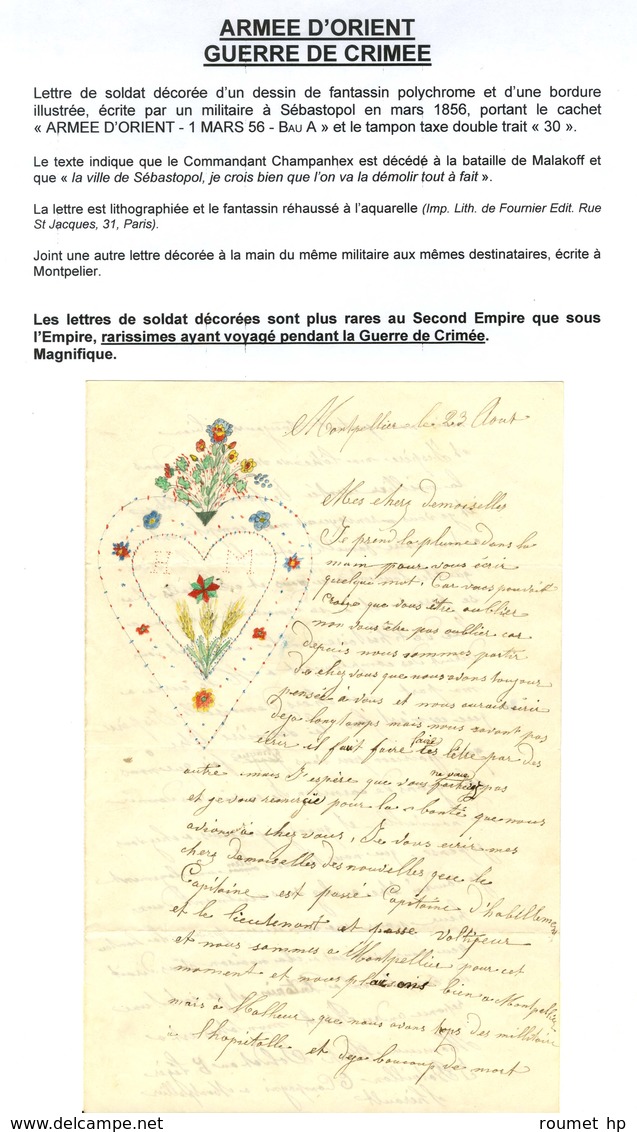 ARMEE D'ORIENT
GUERRE DE CRIMEE
Lettre de soldat décorée d'un dessin de fantassin polychrome et d'une bordure
illustrée, écrite par un militaire à Sébastopol en mars 1856, portant le cachet
« ARMEE D'ORIENT - 1 MARS 56 - BAU A » et le tampon taxe double trait « 30 ».
Le texte indique que le Commandant Champanhex est décédé à la bataille de Malakoff et
que « la ville de Sébastopol, je crois bien que l'on va la démolir tout à fait ».
La lettre est lithographiée et le fantassin réhaussé à l'aquarelle (Imp. Lith. de Fournier Edit. Rue
St Jacques, 31, Paris).
Joint une autre lettre décorée à la main du même militaire aux mêmes destinataires, écrite à
Montpelier.
Les lettres de soldat décorées sont plus rares au Second Empire que sous
l'Empire, rarissimes ayant voyagé pendant la Guerre de Crimée.
Magnifique.
Montpellier le 23 Aout
Mes cherz demoiselles
Je prend la plume dans la
main pour vous écrir
quelque mot, Car vous
croize que vous être oublier
non vous être pas oublier car
depuis nous sommes partir
de chez vous que nous avons toujour
pensée a vous et nous aurait écrir
deja longtamps mais nous savont pas
écrir il faut faire les lètre par des
autre mais J'espère que vous pas
et je vous pour la bonté que nous
avions à chez vous, Je vous écrir mes
cherz demoiselles des nouvelles que le
Capitaine est passé Capitaine d'habillement
et le lieutenant et passe voltijeur
et nous sommes a Montpellier pour cet
moment et nous plaisons bien a Montpellier
mais à Malheur que nous avons trops des millitaire
à l'hopitalle et deja beaucoup de mort
H M
rumeur hp
www.delcampe.net